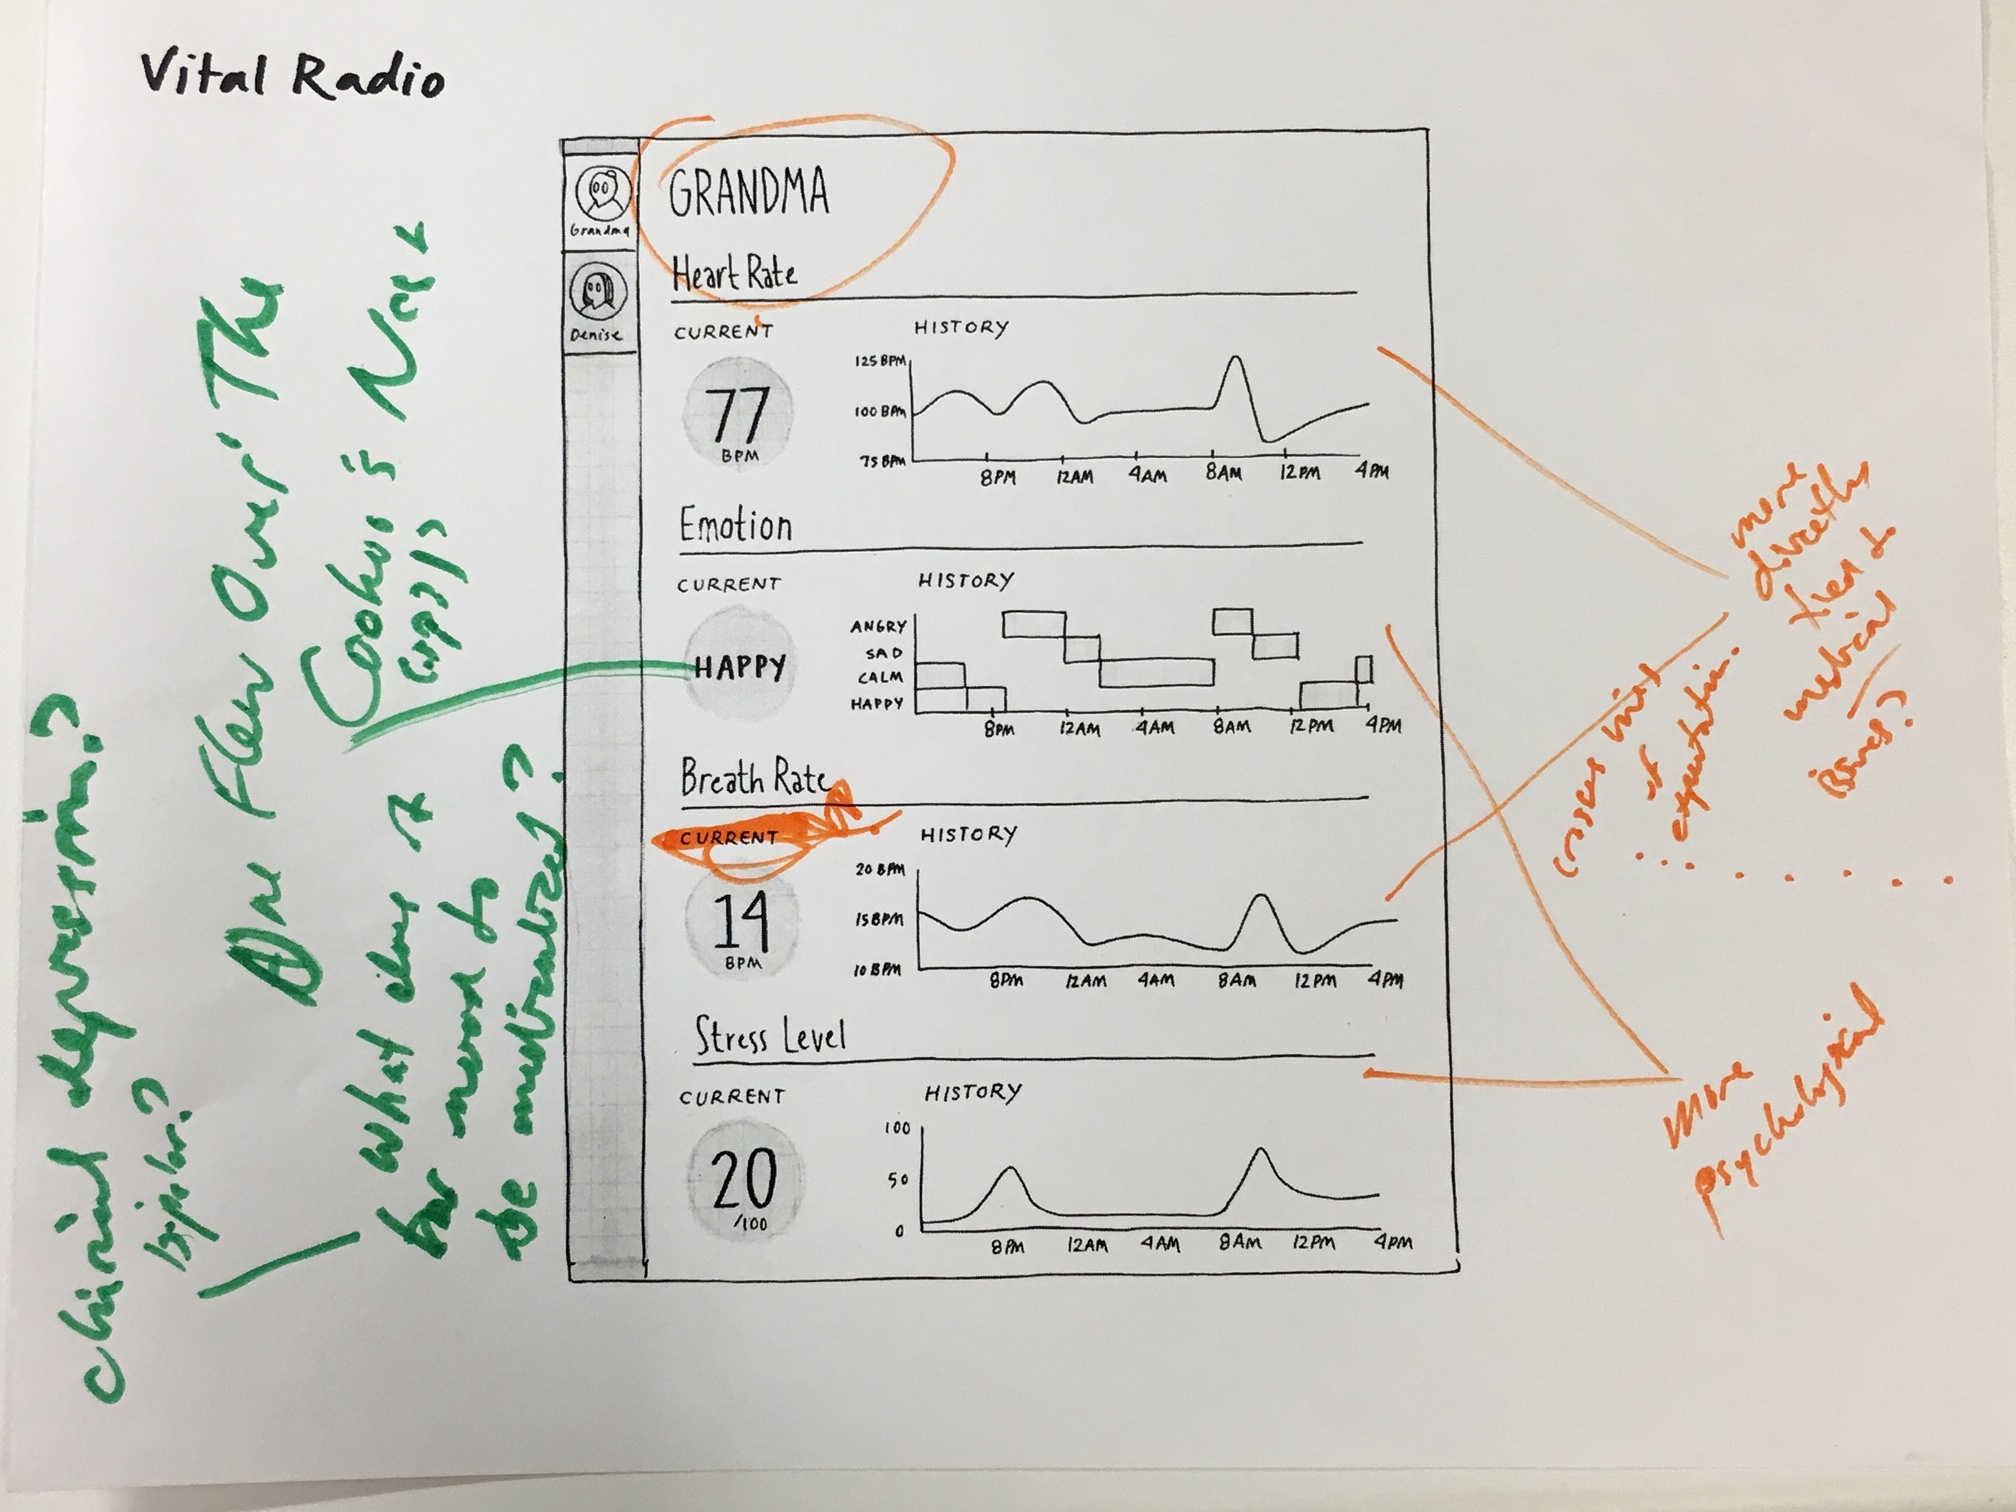 Vital Radio
Grandma
Denise
GRANDMA
Heart Rate
CURRENT
77
BPM
HISTORY
125 BPM
100 BPM
75 BPM
8PM 12AM 4AM 8AM 12PM 4PM
Emotion
CURRENT
HAPPY
HISTORY
ANGRY
SAD
CALM
HAPPY
8PM 12AM 4AM 8AM 12PM 4PM
Breath Rate
CURRENT
14
BPM
HISTORY
20 BPM
15 BPM
10 BPM
8PM 12AM 4AM 8AM 12PM 4PM
Stress Level
CURRENT
20
/100
HISTORY
100
50
0
8PM 12AM 4AM 8AM 12PM 4PM
clinical depression?
bipolar?
One Flew Over The
Cookoo's Nest
What does it
mood to
be medicalized?
more
directly
tied to
medical
crosses mix
of
expectation.
more
psychological